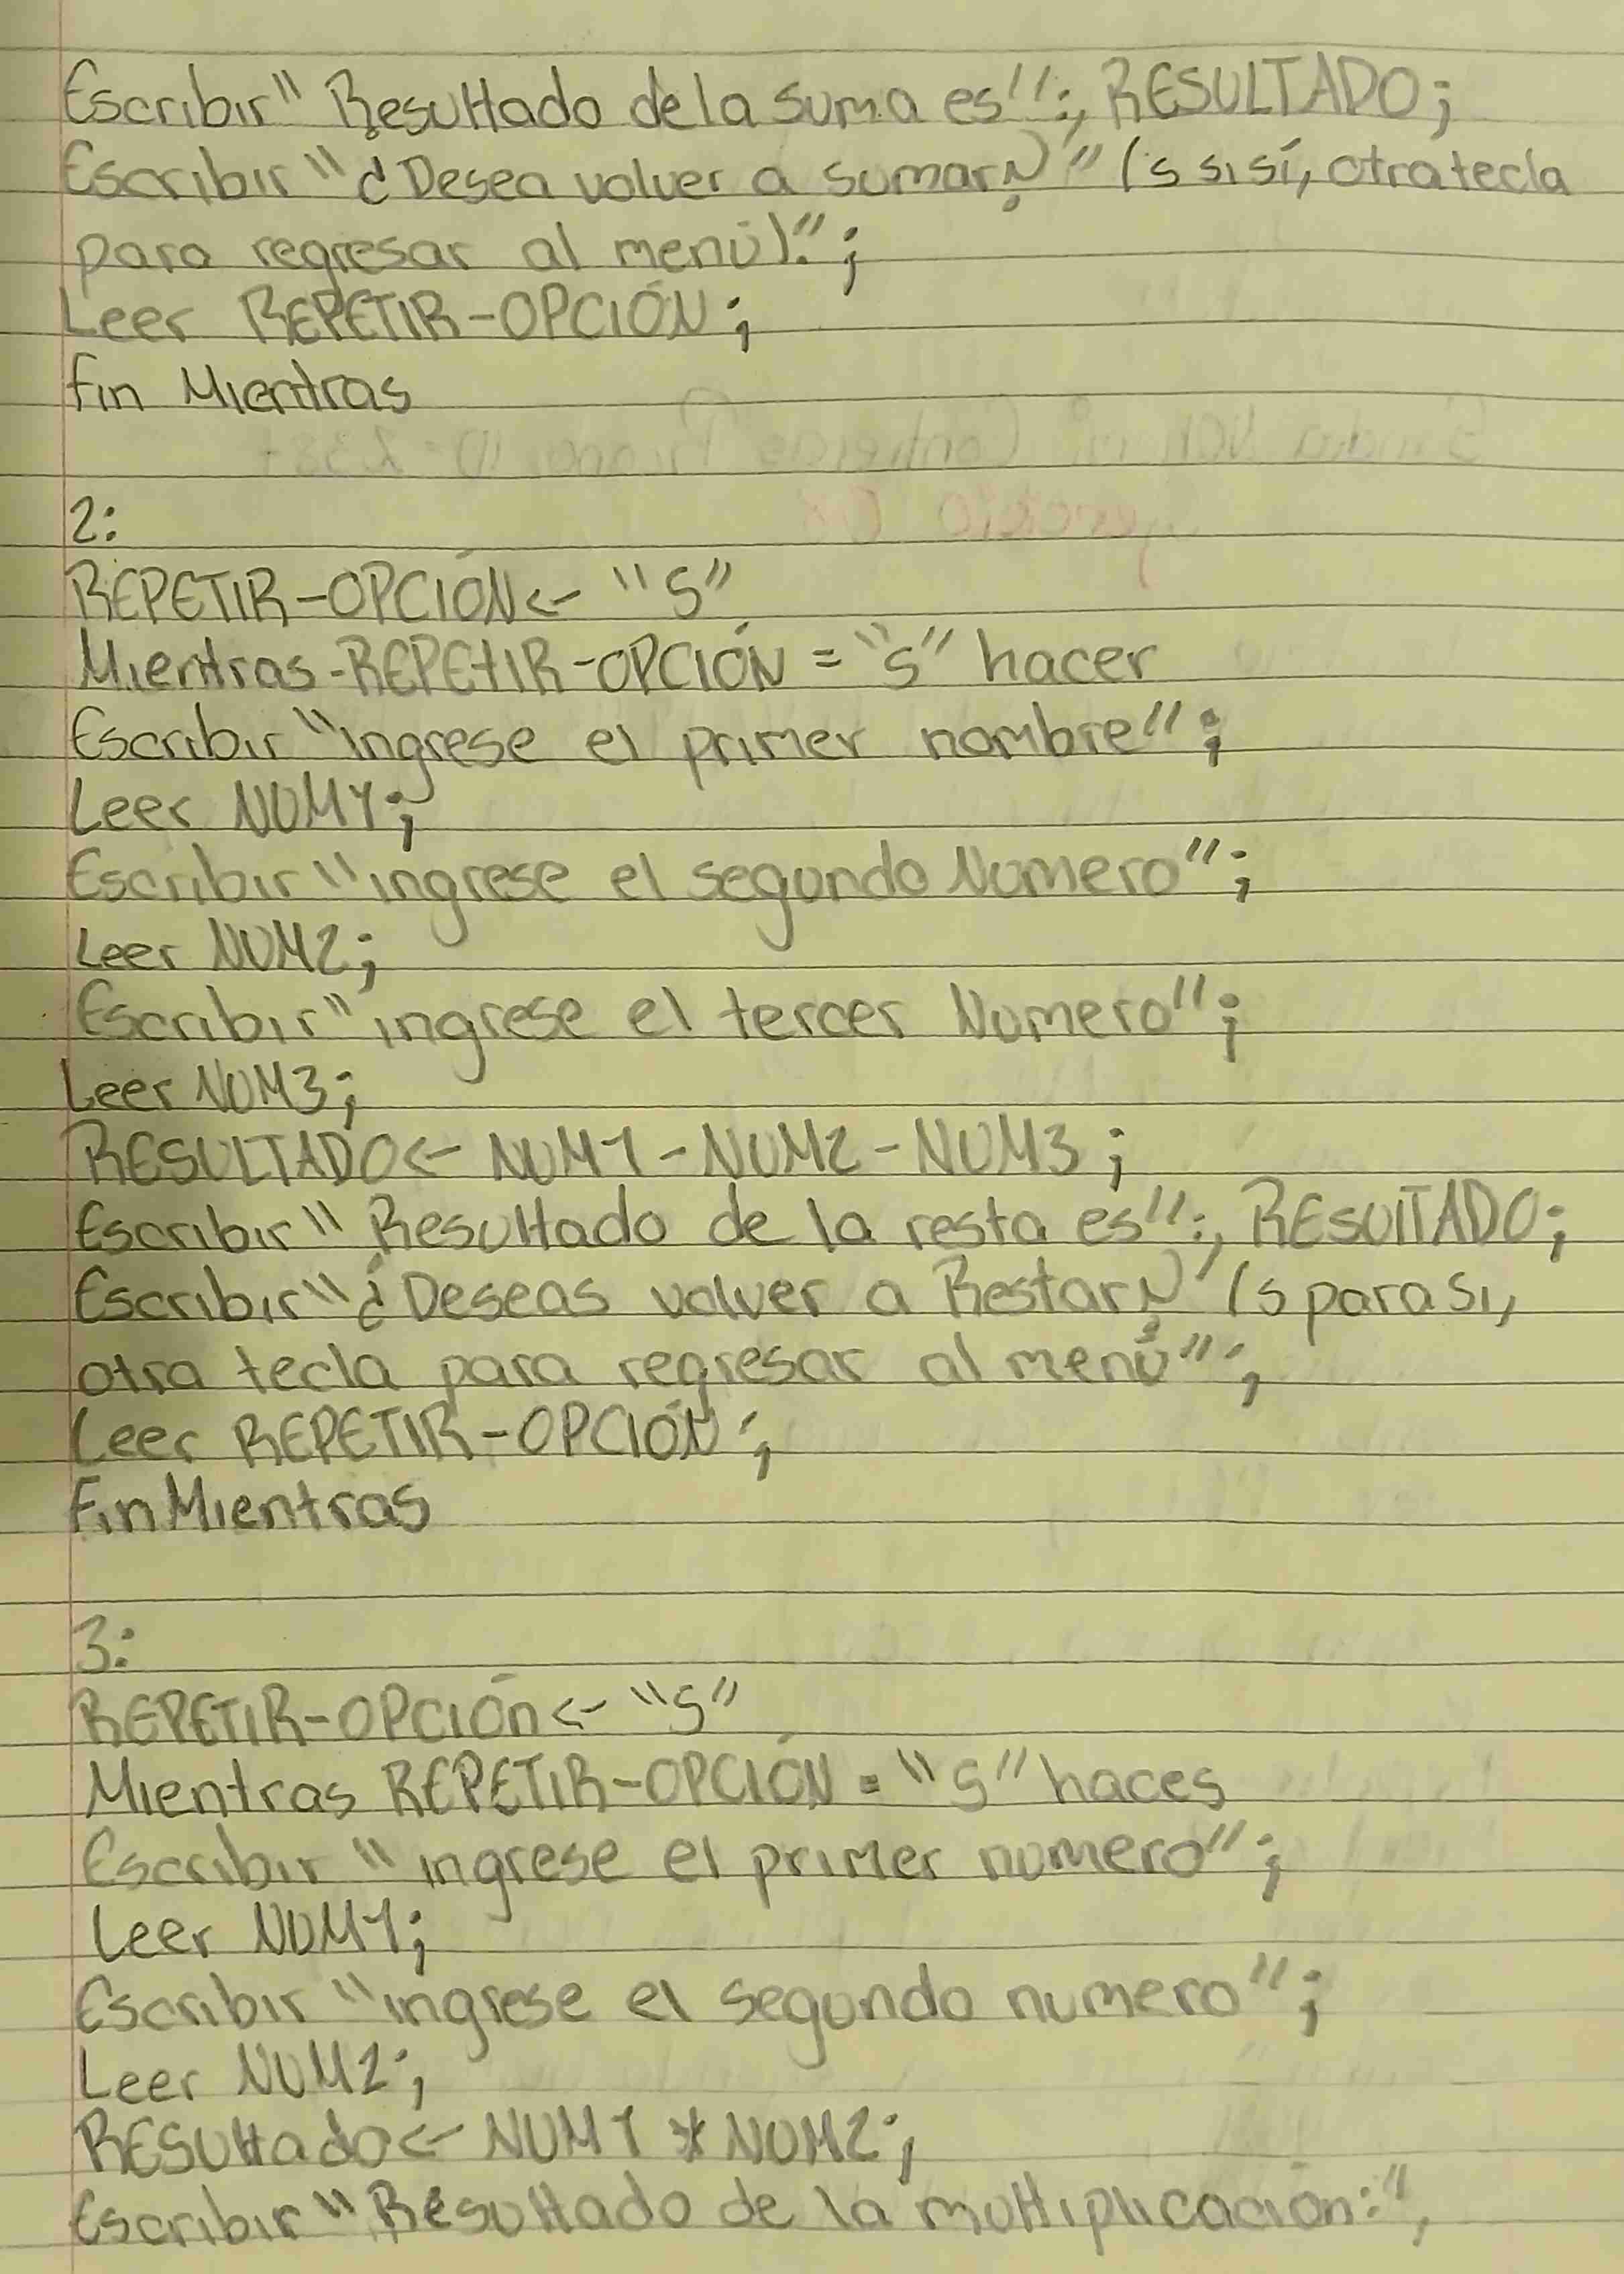 Escribir" Resultado de la suma es":, RESULTADO;
Escribir "¿Desea volver a sumar?" (s si sí, otra tecla
para regresar al menú).";
Leer REPETIR-OPCIÓN;
Fin Mientras
2:
REPETIR-OPCIÓN<- "S"
Mientras-REPETIR-OPCIÓN = "S" hacer
Escribir "ingrese el primer nombre";
Leer NUM1;
Escribir "ingrese el segundo Numero";
Leer NUM2;
Escribir "ingrese el tercer Numero";
Leer NUM3;
RESULTADO<- NUM1-NUM2-NUM3;
Escribir" Resultado de la resta es":, RESULTADO;
Escribir"¿Deseas volver a Restar?' (s para si,
otra tecla para regresar al menú";
Leer REPETIR-OPCIÓN;
Fin Mientras
3:
REPETIR-OPCIÓn<- "S"
Mientras REPETIR-OPCIÓN = "S" haces
Escribir "ingrese el primer numero";
Leer NUM1;
Escribir "ingrese el segundo numero";
Leer NUM2;
RESUltado<- NUM1 * NUM2;
Escribir "Resultado de la multiplicación:",